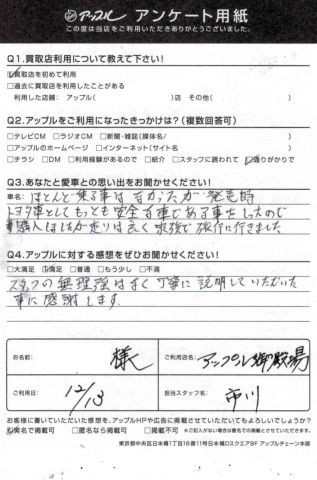 アップル アンケート用紙
この度は当店をご利用いただきありがとうございました。
Q1.買取店利用について教えて下さい!
☑買取店を初めて利用
□過去に買取店を利用したことがある
利用した店舗: アップル( )店 その他( )
Q2.アップルをご利用になったきっかけは?(複数回答可)
□テレビCM □ラジオCM □新聞・雑誌(媒体名/ )
□アップルのホームページ □インターネット(サイト名 )
□チラシ □DM □利用経験があるので □紹介 □スタッフに誘われて ☑通りがかりで
Q3.あなたと愛車との思い出をお聞かせください!
車名: ほとんど乗る事はなかったが 発売時
トヨタ車としてもっとも安全な車である事を知ったので
購入 走りは良く 旅行に行きました
Q4.アップルに対する感想をぜひお聞かせください!
□大満足 ☑満足 □普通 □もう少し □不満
スタッフの無理強はなく丁寧に説明していただいた
事に感謝します.
お名前: 様
ご利用店名: アップル御殿場
ご利用日: 12/13
担当スタッフ名: 市川
お客様に書いていただいた感想を、アップルHPや広告に掲載させていただいてもよろしいでしょうか?
☑実名で掲載可 □匿名なら掲載可 □掲載不可 ※ご記入がない場合は匿名での掲載とさせていただきます。
東京都中央区日本橋1丁目16番11号日本橋Dスクエア9F アップルチェーン本部